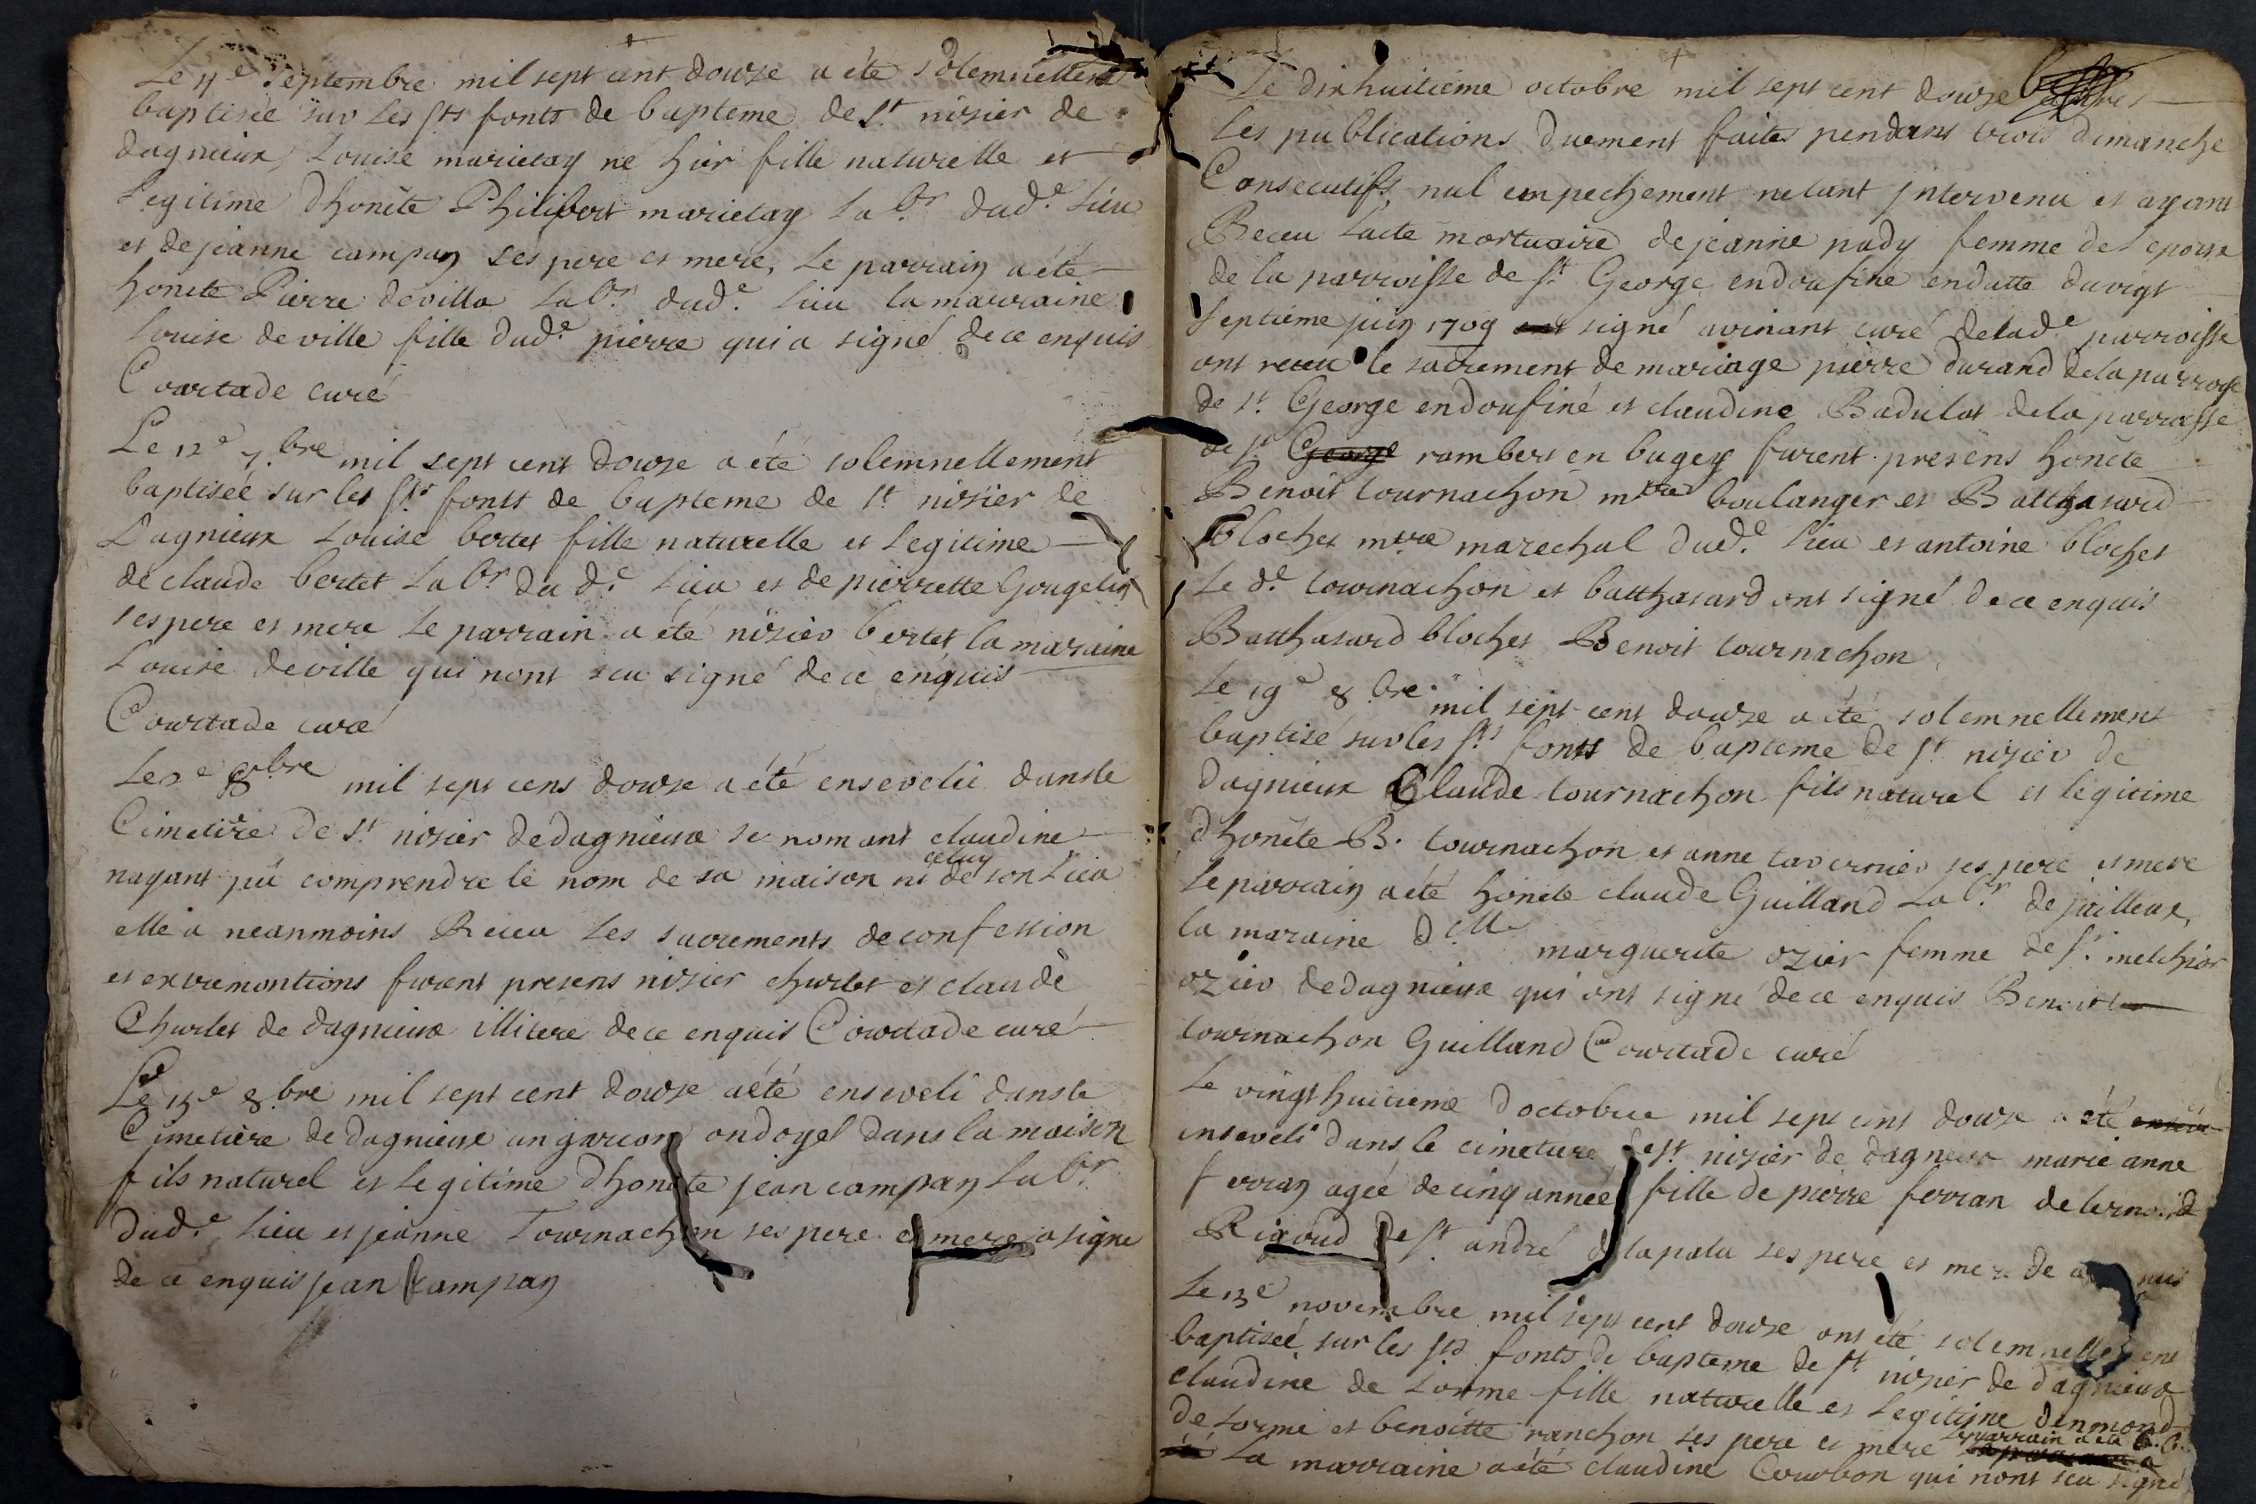 Le 4e Septembre mil sept cent douze a été solemnellem
baptisée sur les sts fonts de bapteme de st nisier de
dagnieux Louise marietay né hier fille naturelle et
Legitime dhonête Philibert marietay Labr dude lieu
et de jeanne campan ses pere et mere, Le parrain a été
honete Pierre deville Labr dude lieu la marraine
Louise deville fille dude pierre qui a signé de ce enquis
Courtade curé
Le 12e 7.bre mil sept cent douze a été solemnellement
baptisée sur les sts fonts de bapteme de st nisier de
Dagnieux Louise bertet fille naturelle et Legitime
de claude bertet Labr du de lieu et de pierrette Gougelin
ses pere et mere Le parrain a été nisier bertet la maraine
Louise deville qui nont seu signé de ce enquis
Courtade curé
Le e 8bre mil sept cens douze a été ensevelie dans le
Cimetiere de st nisier de dagnieux se nomant claudine
nayant pû comprendre le nom de sa maison ni celuy de son lieu
elle a neanmoins Receu Les sacrements de confession
et extremontions furent presens nisier charlet et claude
Charlet de dagnieux illitere de ce enquis Courtade curé
Le 15e 8.bre mil sept cent douze a été enseveli dans le
Cimetière de dagnieux un garcon ondoyé dans la maison
fils naturel et Legitime dhonête jean campan Labr
dude lieu et jeanne Tournachon ses pere et mere a signe
de ce enquis jean Campan
Le dixhuitiéme octobre mil sept cent douze apres
Les publications duement faites pendant trois dimanche
Consecutifs, nul empechement netant jntervenu et ayant
Receu Lacte mortuaire de jeanne pady femme de Lepoux
de la parroisse de st George en doufiné en datte du vigt
septiéme juin 1709 signé avinant curé de lade parroisse
ont receu le sacrement de mariage pierre durand de la parroisse
de st George en doufiné et claudine Badulat de la parroisse
de st George rambert en bugey furent presens honête
Benoit tournachon mtre boulanger et Balthasard
blochet mtre marechal dude lieu et antoine blochet
Le de tournachon et balthasard ont signé de ce enquis
Balthasard blochet Benoit tournachon
Le 19e 8bre mil sept cent douze a été solemnellement
baptisé sur les sts fonts de bapteme de st nisier de
dagnieux Claude tournachon fils naturel et legitime
dhonête B. tournachon et anne tavernier ses pere et mere
Le parrain a été honete claude Guilland Labr de jailleux,
la maraine delle marguerite ozier femme de sr melchior
ozier de dagnieux qui ont signé de ce enquis Benoit
tournachon Guilland Courtade curé
Le vingthuitieme doctobre mil sept cent douze a été
enseveli dans le cimetiere de st nisier de dagnieux marie anne
ferran agée de cinq année fille de pierre ferran et de
Rigoud de st andré de lapalu ses pere et mere de
Le 13e novembre mil sept cent douze ont été solemnellement
baptiseé sur les sts fonts de bapteme de st nisier de dagnieux
claudine de Lorme fille naturelle et Legitime denmond
de Lorme et benoitte ranchon ses pere et mere Le parrain a été
La marraine a été claudine Courbon qui nont seu signé